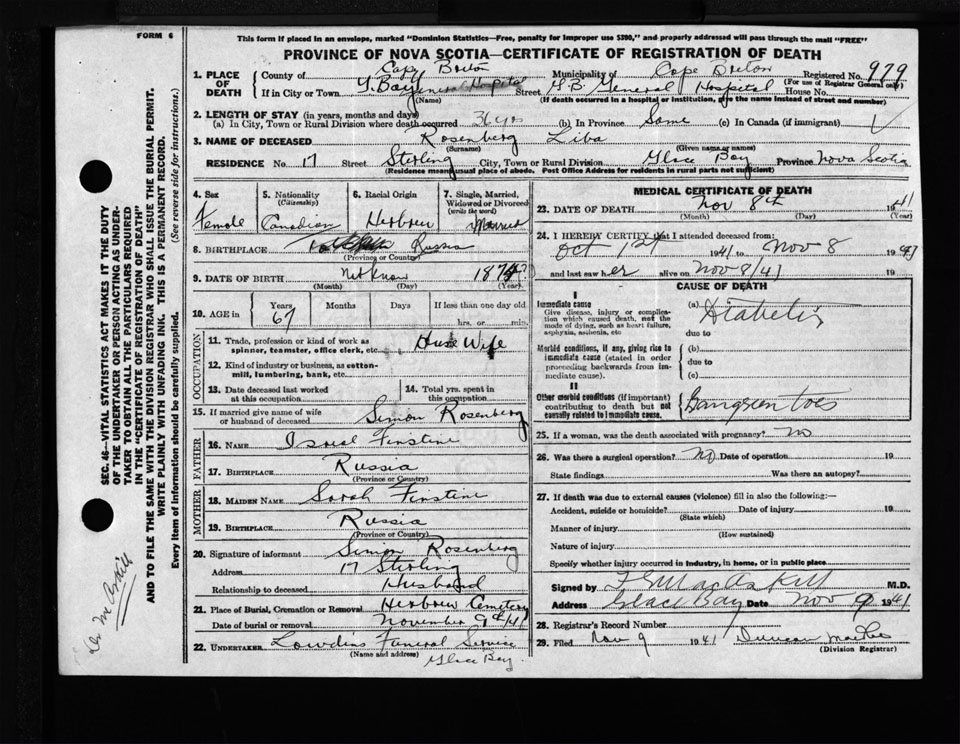 FORM 6
This form if placed in an envelope, marked "Dominion Statistics—Free, penalty for improper use $300," and properly addressed will pass through the mail "FREE"
PROVINCE OF NOVA SCOTIA—CERTIFICATE OF REGISTRATION OF DEATH
1. PLACE OF DEATH
County of Cape Breton Municipality of Cape Breton Registered No. 979
(For use of Registrar General only)
If in City or Town G. Bay General Hospital Street G.B. General Hospital House No.
(Name) (If death occurred in a hospital or institution, give the name instead of street and number)
2. LENGTH OF STAY (in years, months and days)
(a) In City, Town or Rural Division where death occurred 36 yrs (b) In Province Same (c) In Canada (if immigrant)
3. NAME OF DECEASED Rosenberg Liba
(Surname) (Given name or names)
RESIDENCE No. 17 Street Sterling City, Town or Rural Division Glace Bay Province Nova Scotia
(Residence means usual place of abode. Post Office Address for residents in rural parts not sufficient)
4. Sex
Female
5. Nationality
(Citizenship)
Canadian
6. Racial Origin
Herbrew
7. Single, Married, Widowed or Divorced
(write the word)
Married
8. BIRTHPLACE Russia
(Province or Country)
9. DATE OF BIRTH Not Know 187
(Month) (Day) (Year)
10. AGE in
Years 67
Months
Days
If less than one day old
hrs. or min.
OCCUPATION
11. Trade, profession or kind of work as spinner, teamster, office clerk, etc. House Wife
12. Kind of industry or business, as cotton-mill, lumbering, bank, etc.
13. Date deceased last worked at this occupation
14. Total yrs. spent in this occupation
15. If married give name of wife or husband of deceased Simon Rosenberg
FATHER
16. NAME Israel Finstine
17. BIRTHPLACE Russia
(Province or Country)
MOTHER
18. MAIDEN NAME Sarah Finstine
19. BIRTHPLACE Russia
(Province or Country)
20. Signature of informant Simon Rosenberg
Address 17 Sterling
Relationship to deceased Husband
21. Place of Burial, Cremation or Removal Herbrew Cemetery
Date of burial or removal November 9th/41
22. UNDERTAKER Lowden Funeral Service
(Name and address) Glace Bay.
MEDICAL CERTIFICATE OF DEATH
23. DATE OF DEATH Nov 8th 1941
(Month) (Day) (Year)
24. I HEREBY CERTIFY that I attended deceased from:
Oct 1st 1941 to Nov 8 1941
and last saw her alive on Nov 8/41
CAUSE OF DEATH
I
Immediate cause
Give disease, injury or complication which caused death, not the mode of dying, such as heart failure, asphyxia, asthenia, etc
(a) Diabetis
due to
Morbid conditions, if any, giving rise to immediate cause (stated in order proceeding backwards from immediate cause).
(b)
due to
(c)
II
Other morbid conditions (if important) contributing to death but not causally related to immediate cause.
Gangreen toes
25. If a woman, was the death associated with pregnancy? No
26. Was there a surgical operation? No Date of operation 19
State findings Was there an autopsy?
27. If death was due to external causes (violence) fill in also the following:—
Accident, suicide or homicide? Date of injury 19
(State which)
Manner of injury
(How sustained)
Nature of injury
Specify whether injury occurred in industry, in home, or in public place
Signed by M.D.
Address Glace Bay Date Nov 9 1941
28. Registrar's Record Number
29. Filed Nov 9 1941 Duncan
(Division Registrar)
SEC. 46—VITAL STATISTICS ACT MAKES IT THE DUTY
OF THE UNDERTAKER OR PERSON ACTING AS UNDER-
TAKER TO OBTAIN ALL THE PARTICULARS REQUIRED
IN THE "CERTIFICATE OF REGISTRATION OF DEATH"
AND TO FILE THE SAME WITH THE DIVISION REGISTRAR WHO SHALL ISSUE THE BURIAL PERMIT.
WRITE PLAINLY WITH UNFADING INK. THIS IS A PERMANENT RECORD.
Every item of Information should be carefully supplied. (See reverse side for instructions.)